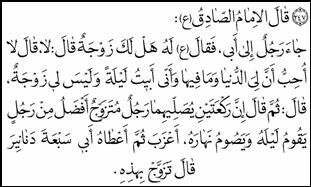 ﴿٢٤٧﴾ قَالَ الإِمَامُ الصَّادِقُ (ع):
جَاءَ رَجُلٌ إِلَى أَبِي، فَقَالَ (ع) لَهُ هَلْ لَكَ زَوْجَةٌ قَالَ: لَا قَالَ لَا
أُحِبُّ أَنَّ لِيَ الدُّنْيَا وَمَا فِيهَا وَأَنِّي أَبِيتُ لَيْلَةً وَلَيْسَ لِي زَوْجَةٌ،
قَالَ: ثُمَّ قَالَ إِنَّ رَكْعَتَيْنِ يُصَلِّيهِمَا رَجُلٌ مُتَزَوِّجٌ أَفْضَلُ مِنْ رَجُلٍ
يَقُومُ لَيْلَهُ وَيَصُومُ نَهَارَهُ، أَعْزَبَ ثُمَّ أَعْطَاهُ أَبِي سَبْعَةَ دَنَانِيرَ
قَالَ تَزَوَّجْ بِهَذِهِ.